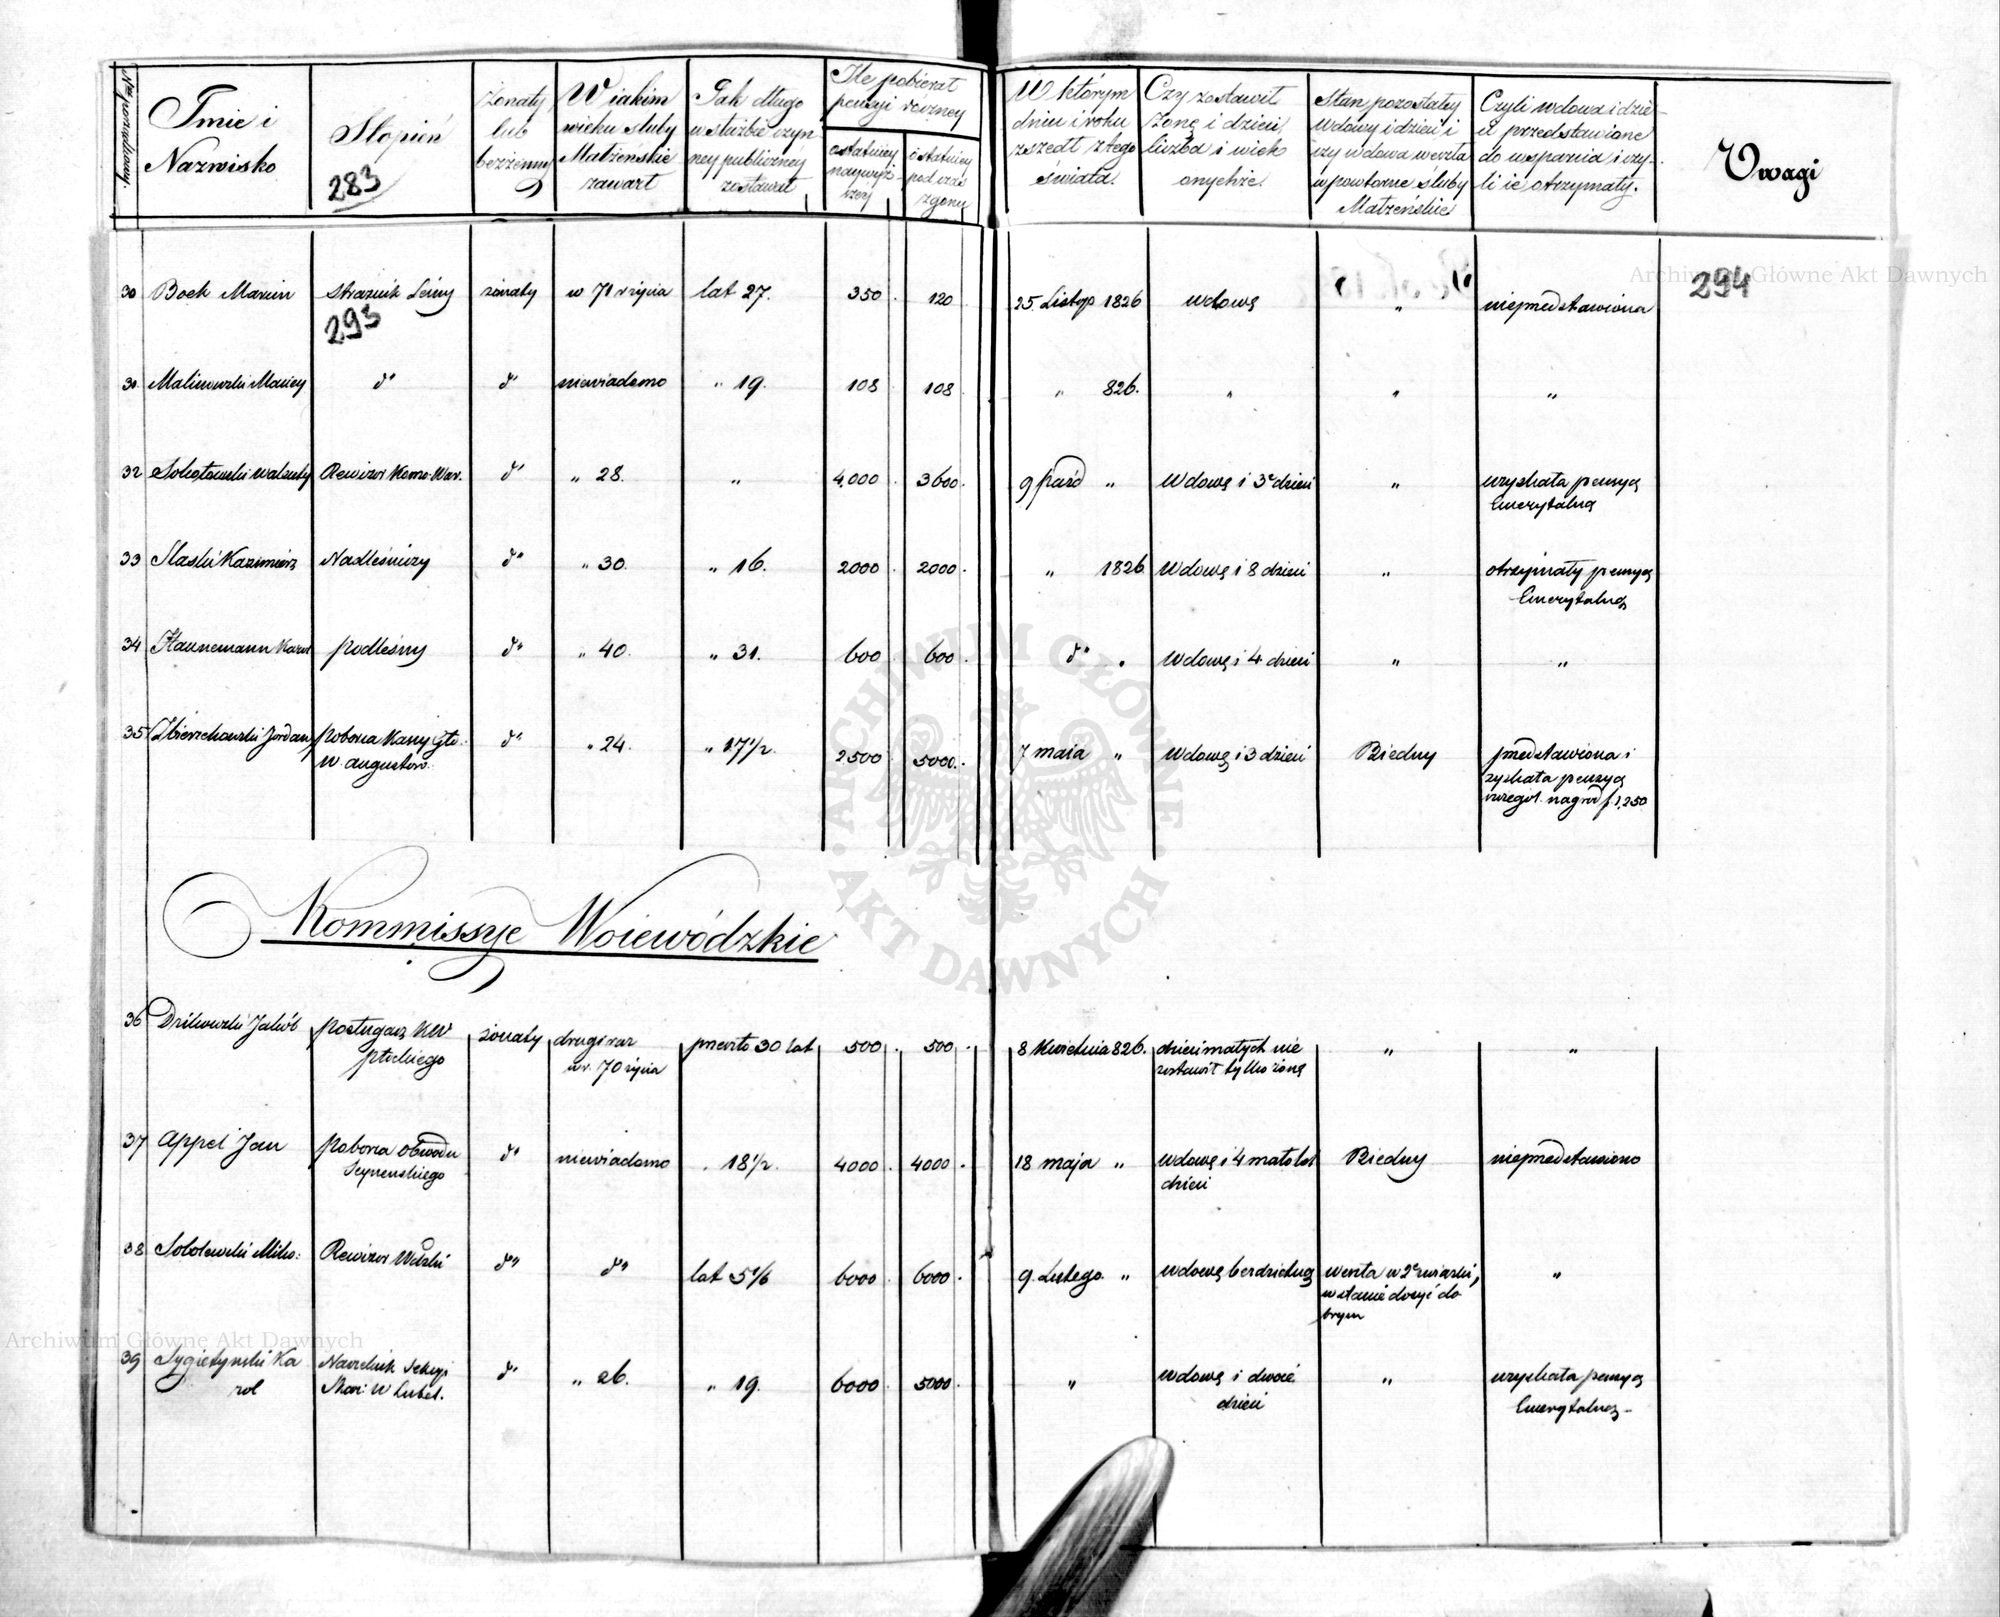 N<sup>r</sup> porządkowy.
Imie i
Nazwisko
Stopień
283
żonaty
lub
bezżenny
W iakim
wieku śluby
Małżeńskie
zawarł
Jak długo
w służbie czyn
ney publiczney
zostawał
Ile pobierał
pensyi roczney
ostatniey
naywyż-
szey
ostatniey
pod czas
zgonu
W którym
dniu i roku
zszedł z tego
świata.
Czy zostawił
żonę i dzieci,
liczba i wiek
onychże.
Stan pozostały
Wdowy i dzieci i
czy wdowa weszła
w powtorne śluby
Małżeńskie
Czyli wdowa i dzie-
ci przedstawione
do wsparcia i czy-
li ie otrzymały.
Uwagi
30 Bock Marcin strażnik Leśny żonaty w 71 r życia lat 27. 350 120 25 Listop 1826 wdowę " nieprzedstawiona
293
294
31 Malinowski Maciey d° d° niewiadomo " 19. 108 108 " 826. " " "
32 Sokołowski Walenty Rewizor Komo: War. d° " 28. " 4,000 3600 9 paźd " Wdowę i 3<sup>e</sup> dzieci " uzyskała pensyą
Emerytalną
33 Slaski Kazimierz Nadleśniczy d° " 30. " 16. 2000 2000 " 1826 Wdowę i 8 dzieci " otrzymały pensyą
Emerytalną
34 Hannemann Karol podleśny d° " 40. " 31. 600 600 d° " Wdowę i 4 dzieci " "
35 Zbierzchowski Jordan Poborca Kassy Głó.
W. Augustow. d° " 24. " 17 1/2. 2500 5000 7 maia " Wdowę i 3 dzieci Biedny przedstawiona i
zyskała pensyą
szczegół. nagrod f. 1,250
Kommissye Woiewódzkie
36 Dzikowski Jakób posługacz KW
płockiego żonaty drugi raz
w r. 70 życia przeszło 30 lat 500 500 8 Kwietnia 826. dzieci małych nie
zostawił tylko żonę " "
37 Appel Jan Poborca Obwodu
Seynenskiego d° niewiadomo " 18 1/2. 4000 4000 18 maja " wdowę i 4 małolet
dzieci Biedny nieprzedstawiono
38 Sobolewski Miko: Rewizor Wdzki d° d° lat 5 1/6 6000 6000 9 Lutego " wdowę bezdzietną weszła w 2<sup>e</sup> związki,
w stanie dosyć do
brym "
39 Sygietyński Ka
rol Naczelnik Sekcyi
Skar: W Lubel. d° " 26. " 19. 6000 5000 " wdowę i dwoie
dzieci " uzyskała pensyą
Emerytalną
Archiwum Główne Akt Dawnych
ARCHIWUM GŁÓWNE AKT DAWNYCH
Archiwum Główne Akt Dawnych